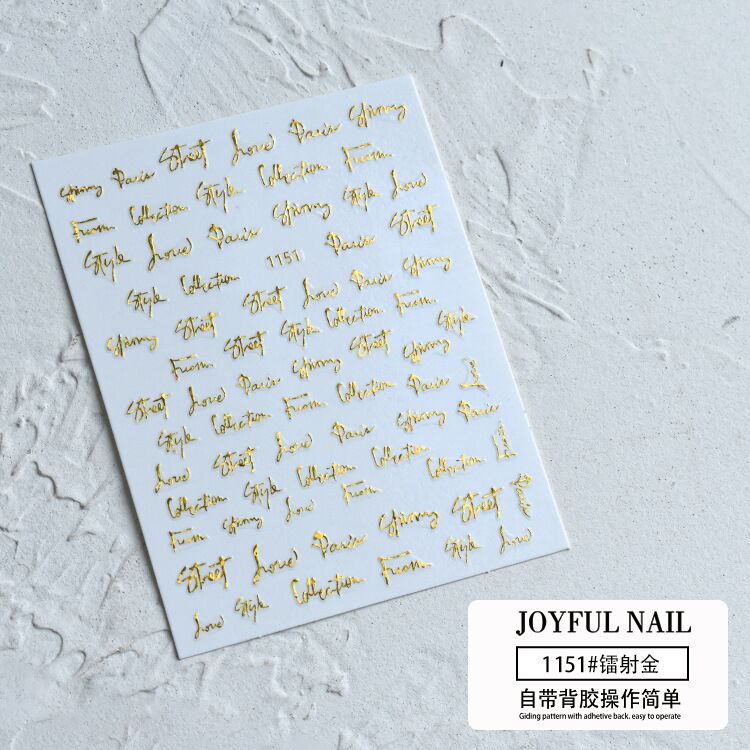 Spinny Paris Street Love Paris Spinny
From Collection Style Collection From
Style Love Paris Spinny Style Love
Style Collection 1151 Paris Street
Spinny Street Street Love Paris Spinny
From Street Style Collection From
Street Love Paris Spinny Street Spinny Style
Style Collection From Collection Paris Love
Love Street Love Paris Spinny Paris
Collection Style Collection Collection Collection Love
From Spinny Love From
Street Love Paris Spinny Street Paris
Love Style Collection From Style Love
JOYFUL NAIL
1151#镭射金
自带背胶操作简单
Giding pattern with adhetive back. easy to operate